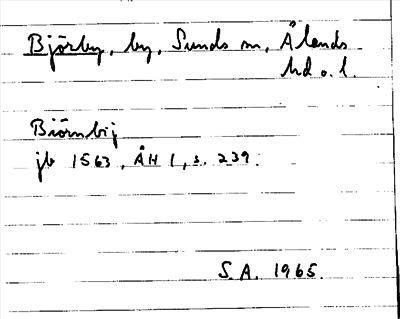 Björby, by, Sunds sn, Ålands
hd o. l.
Biörnbij
jb 1563, ÅH 1, s. 239.
S.A. 1965.